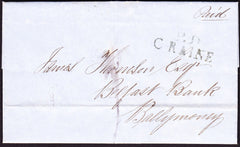 Paid
P.D
C RAINE
James Thomson Esqr
Belfast Bank
Ballymoney